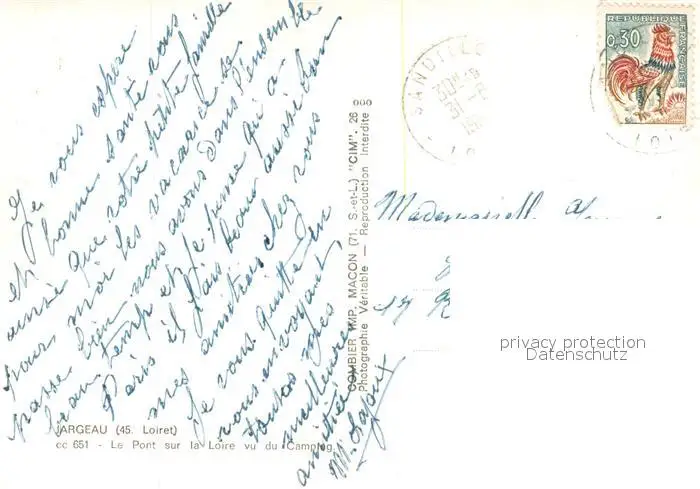 Je vous espère
et bonne santé vous
ainsi que votre petite famille
pour moi les vacances se
passe bien nous avons dans l'ensemble
beau temp et je pense qu'a
Paris il fais beau aussi bon
mes amitiés chez vous
Je vous quitte en
vous envoyant
toutes mes
meilleures
amitiés
JARGEAU (45. Loiret)
cc 651 - Le Pont sur la Loire vu du Camping
COMBIER IMP. MACON (71. S.-et-L.) "CIM" 26 000
Photographie Véritable — Reproduction Interdite
REPUBLIQUE FRANÇAISE
0,30
SANDILLO
30
31
Mademoiselle
17 R
privacy protection
Datenschutz